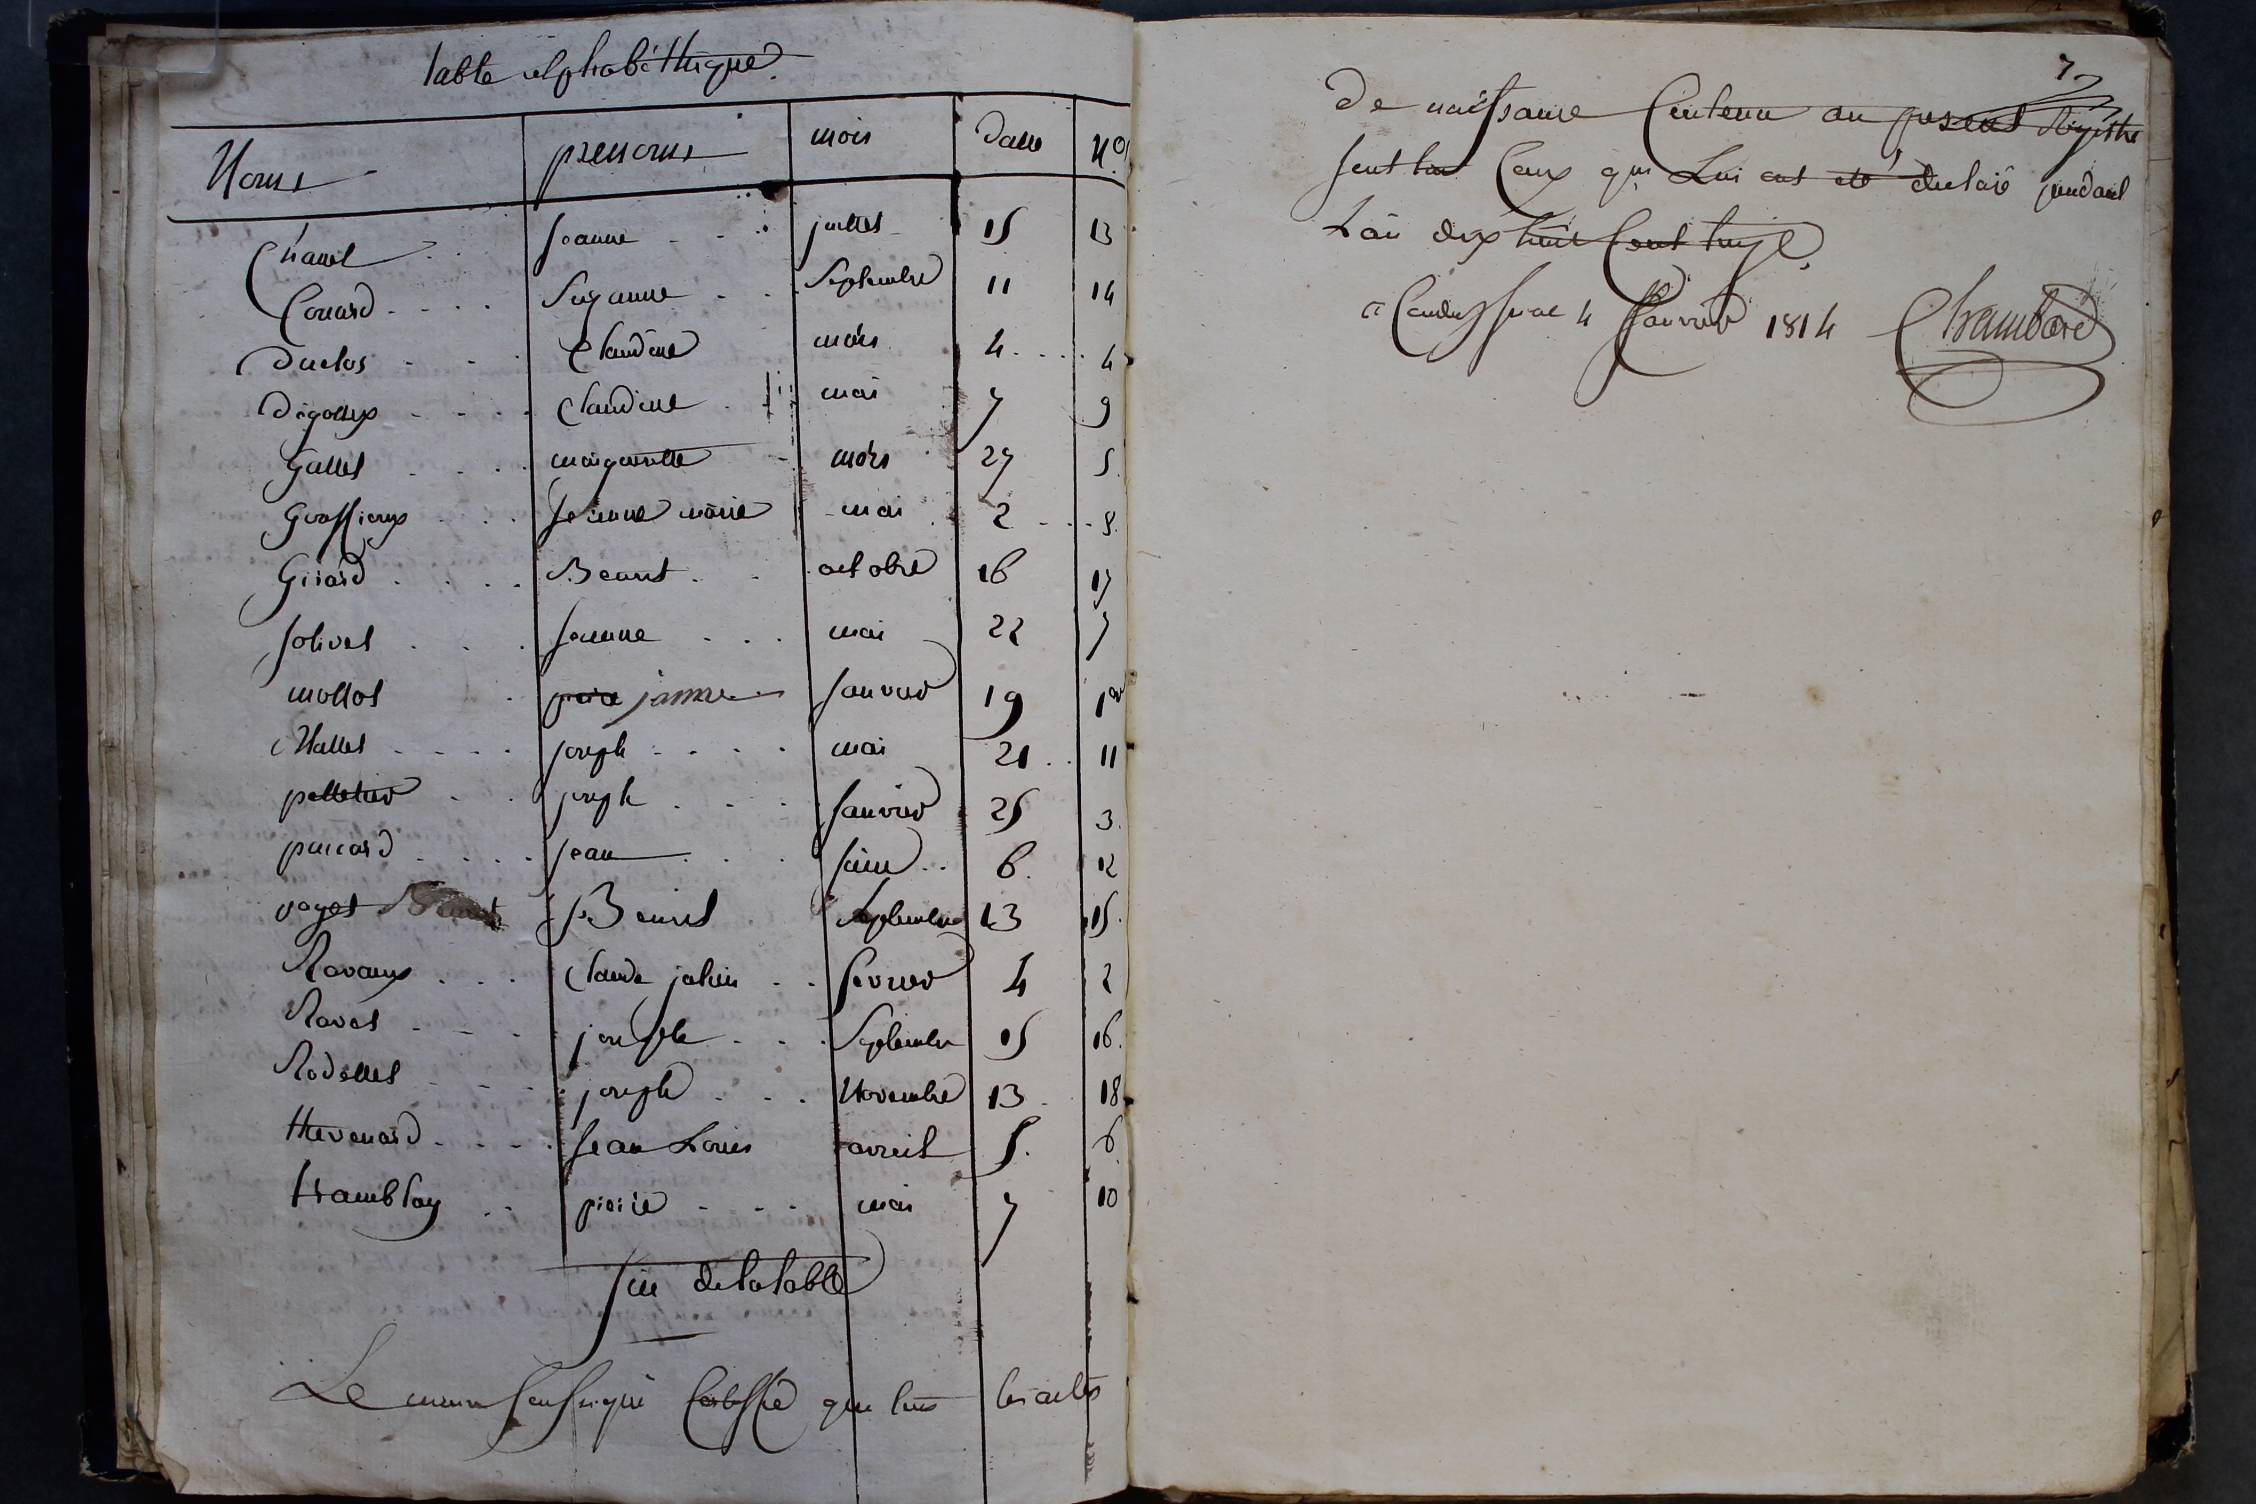 table alphabéthique.
Noms prenoms mois Datte Nos
Chanel Jeanne juillet 15 13
Conard Suzanne Septembre 11 14
Duclos Claudine mars 4 4
Dégoutte Claudine mai 7 9
Gallet margueritte mars 27 5
Graffieux Jeanne marie mai 2 8
Girard Benoit octobre 16 17
Jolivet Jeanne mai 22 7
mollot janvier 19 1er
Nallet joseph mai 21 11
pelletier joseph janvier 25 3
poncard Jean juin 6 12
poyet Benoit Septembre 13 15
Ravaux Claude julien fevrier 4 2
Ravet joseph Septembre 15 16
Rodellet joseph Novembre 13 18
thevenard Jean Louis avril 5 6
tramblay pierre mai 7 10
fin de la table
Le maire soussigné Certiffie que tous les actes
7
De naissance Contenu au present Régistre
sont tous Ceux qui Lui ont été declaré pendant
L'an dix huit Cent treize
4 janvier 1814 Chambard